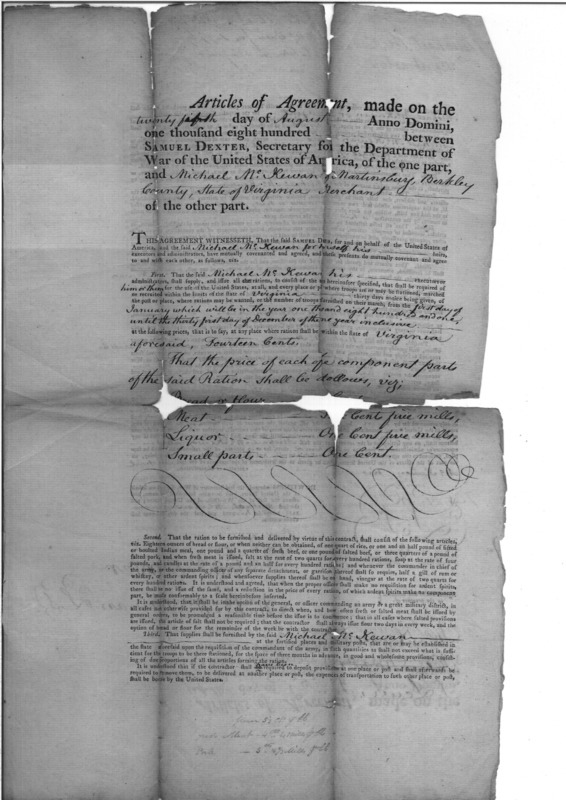 Articles of Agreement, made on the
twenty day of August Anno Domini,
one thousand eight hundred between
SAMUEL DEXTER, Secretary for the Department of
War of the United States of America, of the one part,
and Michael Mc Kewan of Martinsburg, Berkley
County, State of Virginia Merchant
of the other part.
THIS AGREEMENT WITNESSETH, That the said SAMUEL DEXTER, for and on behalf of the United States of
America, and the said Michael Mc Kewan for himself his heirs,
executors and administrators, have mutually covenanted and agreed, and by these presents do mutually covenant and agree
to and with each other, as follows, viz:
First. That the said Michael Mc Kewan his executors or
administrators, shall supply, and issue all the rations, to consist of the articles hereinafter specified, that shall be required of
for the use of the United States, at all, and every place or places where troops are or may be stationed, marched
or recruited within the limits of the State of Virginia thirty days notice being given, of
the post or place, where rations may be wanted, or the number of troops furnished on their march, from the first day of
January which will be in the year one thousand eight hundred and one,
until the thirty first day of December of the same year inclusive
at the following prices, that is to say, at any place where rations shall be within the State of Virginia
aforesaid, Fourteen Cents.
That the price of each of component parts
of the said Ration Shall be as follows, viz;
Bread or flour
Meat Cent five mills,
Liquor One Cent five mills,
Small parts One Cent.
Second. That the ration to be furnished and delivered by virtue of this contract, shall consist of the following articles,
viz. Eighteen ounces of bread or flour, or when neither can be obtained, of one quart of rice, or one and an half pound of sifted
or bolted Indian meal, one pound and a quarter of fresh beef, or one pound of salted beef, or three quarters of a pound of
salted pork, and when fresh meat is issued, salt at the rate of two quarts for every hundred rations, soap at the rate of four
pounds, and candles at the rate of a pound and an half for every hundred rations; and whenever the commander in chief of
the army, or the commanding officer of any separate detachment, or garrison thereof shall so require, half a gill of rum or
whiskey, or other ardent spirits; and whensoever supplies thereof shall be on hand, vinegar at the rate of two quarts for
every hundred rations. It is understood and agreed, that when the proper officer shall make no requisition for ardent spirits,
there shall be no issue of the same, and a reduction in the price of every ration, of which ardent spirits make no component
part, be made conformably to a scale hereinbefore inserted.
It is understood, that it shall be in the option of the general, or officer commanding an army or a great military district, in
all cases not otherwise provided for by this contract, to direct when, and how often fresh or salted meat shall be issued by
general orders, to be promulged a reasonable time before the issue is to commence; that in all cases where salted provisions
are issued, the article of salt shall not be required; that the contractor shall always issue flour two days in every week, and the
option of bread or flour for the remainder of the week be with the contractor.
Third. That supplies shall be furnished by the said Michael Mc Kewan
at the fortified places and military posts, that are or may be established in
the State aforesaid upon the requisition of the commandant of the army, in such quantities as shall not exceed what is sufficient
for the troops to be there stationed, for the space of three months in advance, in good and wholesome provisions, consisting
of due proportions of all the articles forming the ration.
It is understood that if the contractor shall be required to deposit provisions at one place or post and shall afterwards be
required to remove them, to be delivered at another place or post, the expenses of transportation to such other place or post,
shall be borne by the United States.